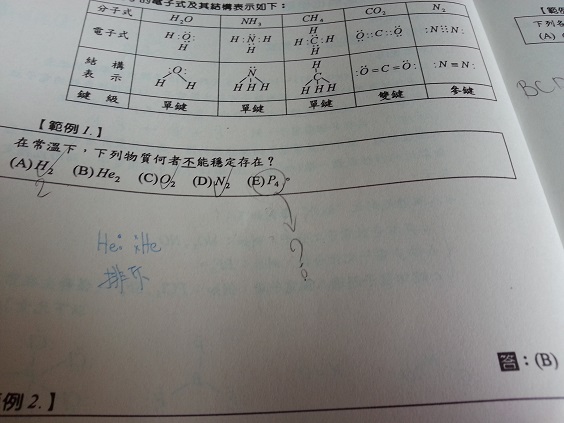 電子式及其結構表示如下：
分子式 H₂O NH₃ CH₄ CO₂ N₂
電子式 H:Ö:H H:N̈:H H H:C:H H H Ö::C::Ö :N⋮⋮N:
結構表示 :Ö: H H N̈ H H H H C H H H :Ö=C=Ö: :N≡N:
鍵級 單鍵 單鍵 單鍵 雙鍵 參鍵
【範例 1.】
在常溫下，下列物質何者不能穩定存在？
(A) H₂ (B) He₂ (C) O₂ (D) N₂ (E) P₄。
2
?
He: :He
排斥
答：(B)
例 2.】
【範
下列名
(A)
BC